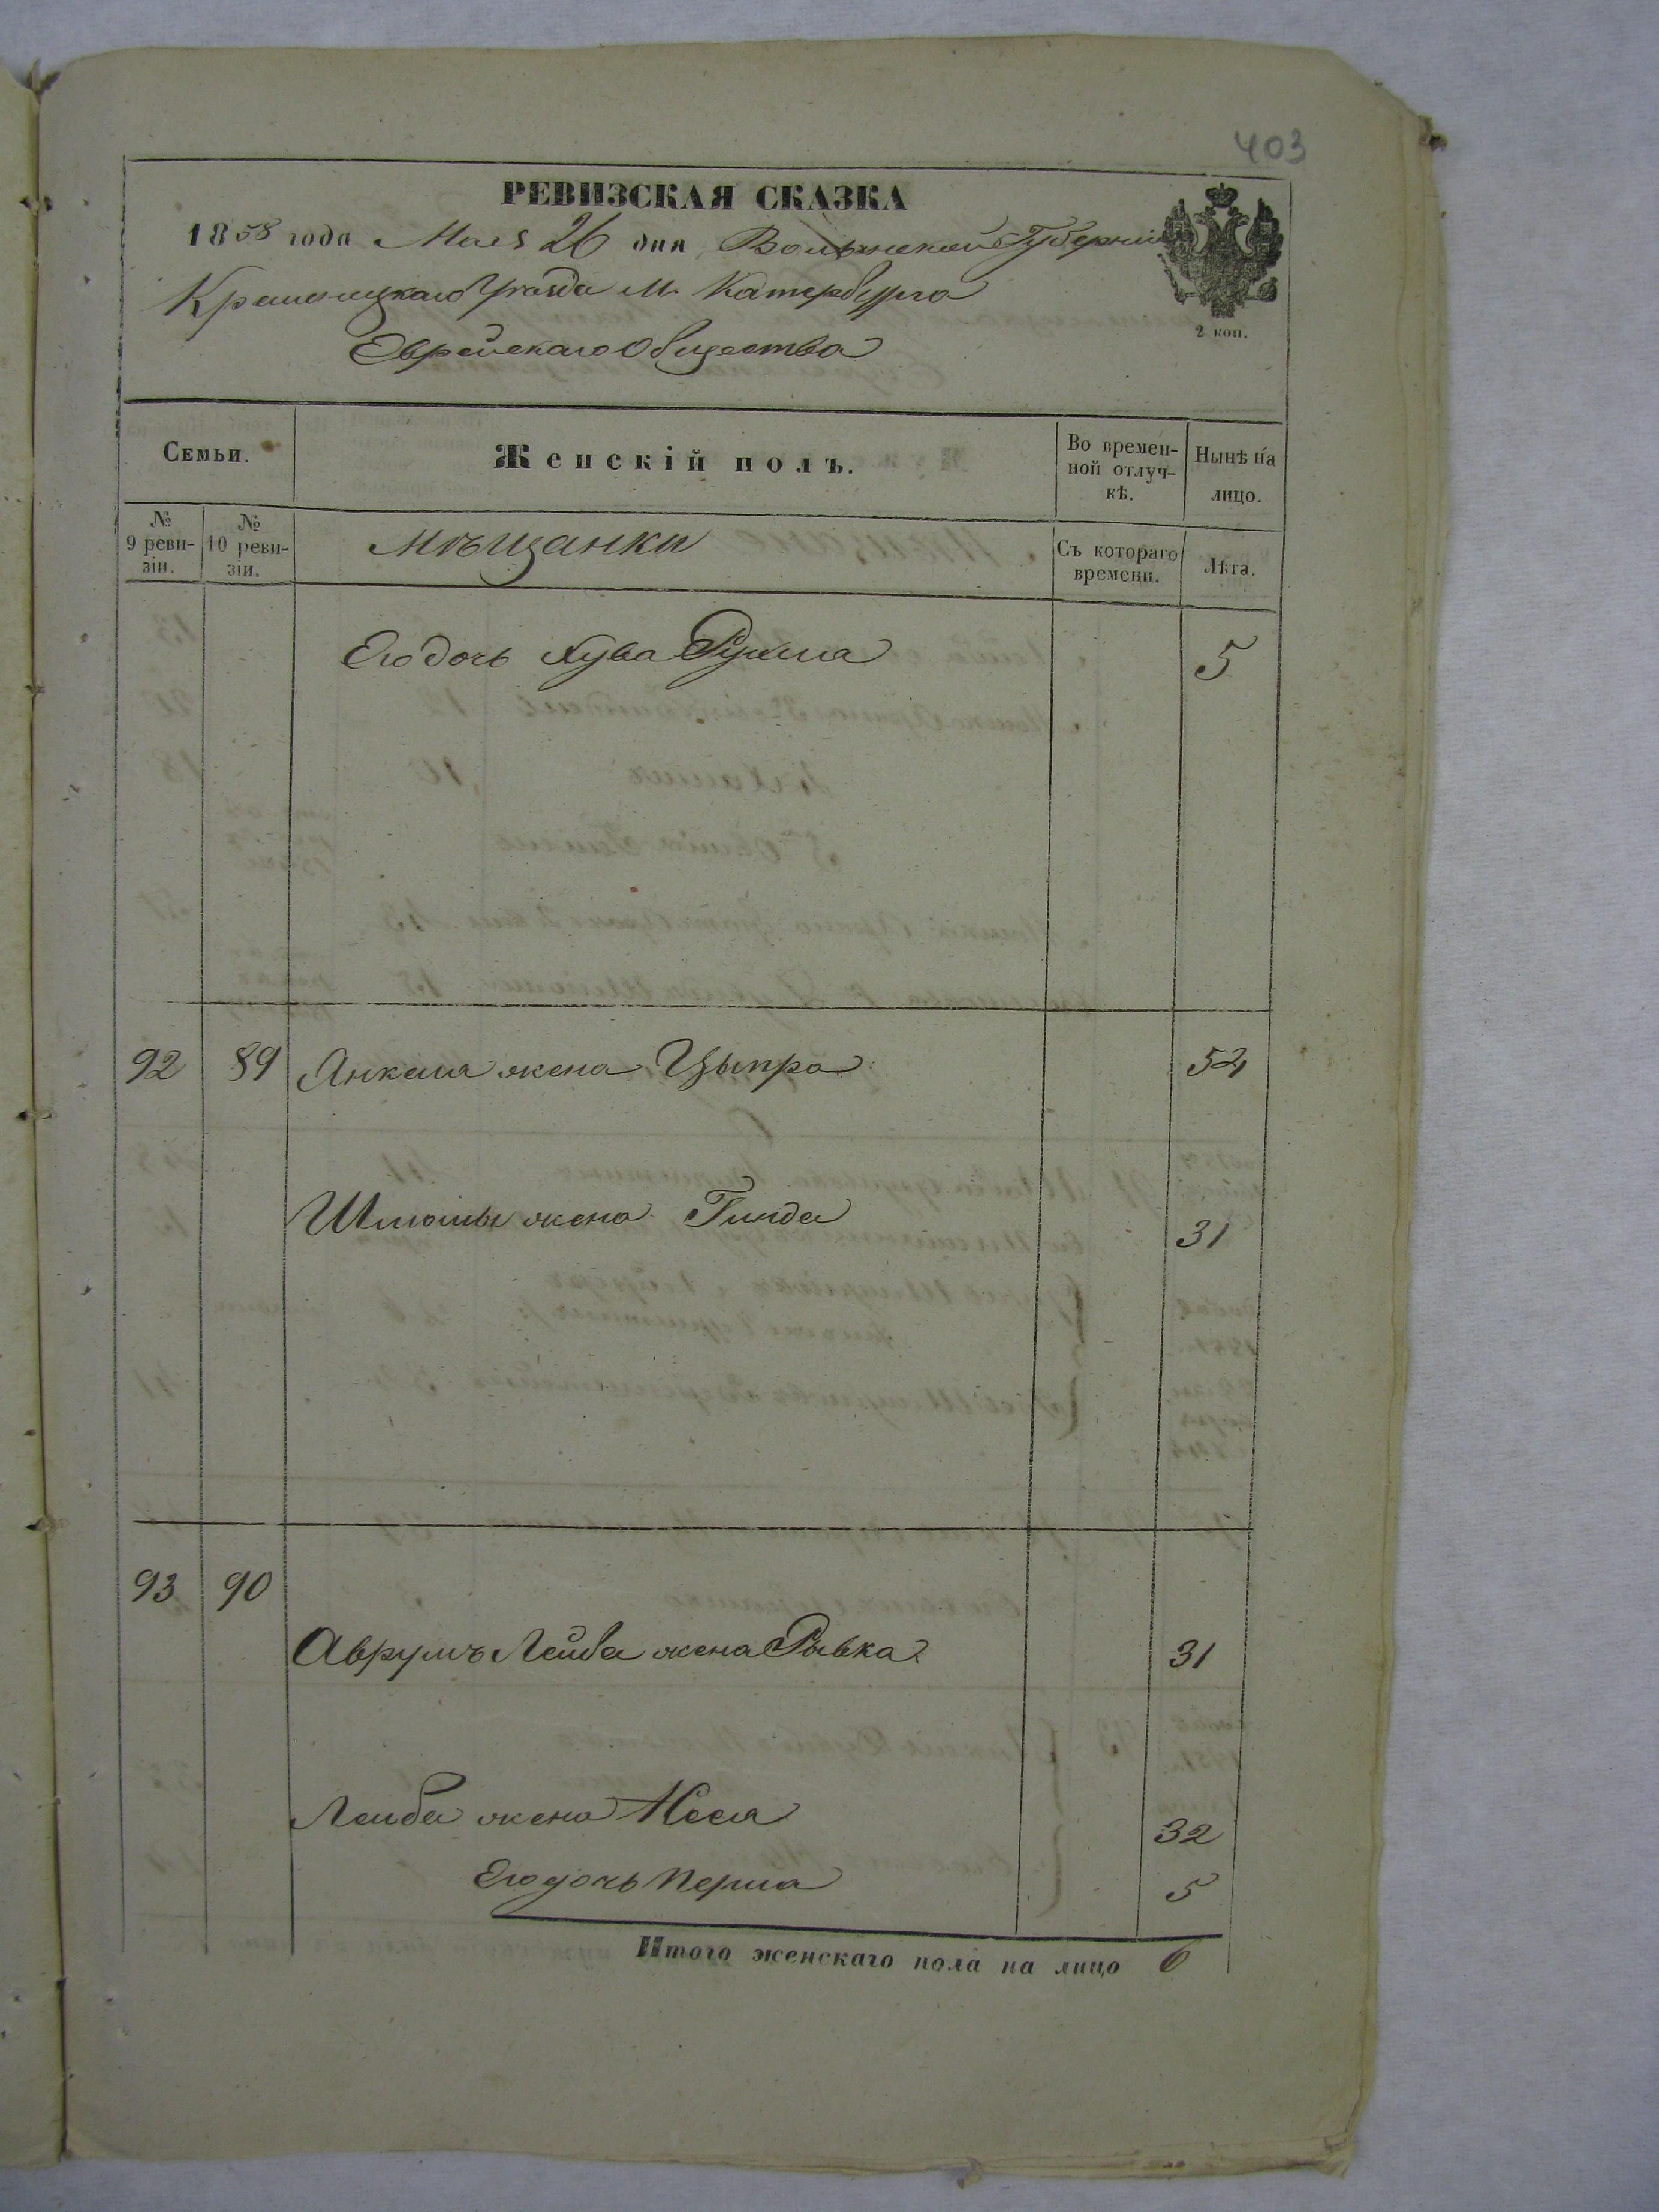 403
РЕВИЗСКАЯ СКАЗКА
1858 года Мая 26 дня Волынской Губерніи
Кременецкаго Уѣзда М. Катербурга
2 коп.
Еврейскаго Общества
Семьи.
Женскій полъ.
Во времен-
ной отлуч-
кѣ.
Нынѣ на
лицо.
№
9 реви-
зіи.
№
10 реви-
зіи.
Мѣщанки
Съ котораго
времени.
Лѣта.
Его дочь Хува Рухла 5
92 89 Янкеля жена Цыпра 54
Шлиомы жена Гинда 31
93 90
Аврумъ Лейба жена Рывка 31
Лейба жена Неся 32
Его дочь Перла 5
Итого женскаго пола на лицо 6